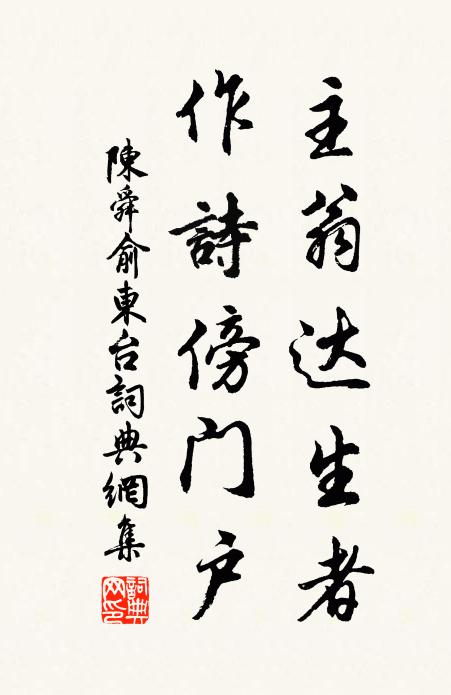 主翁达生者
作詩傍门户
陳舜俞東台詞典網集
詞典网印